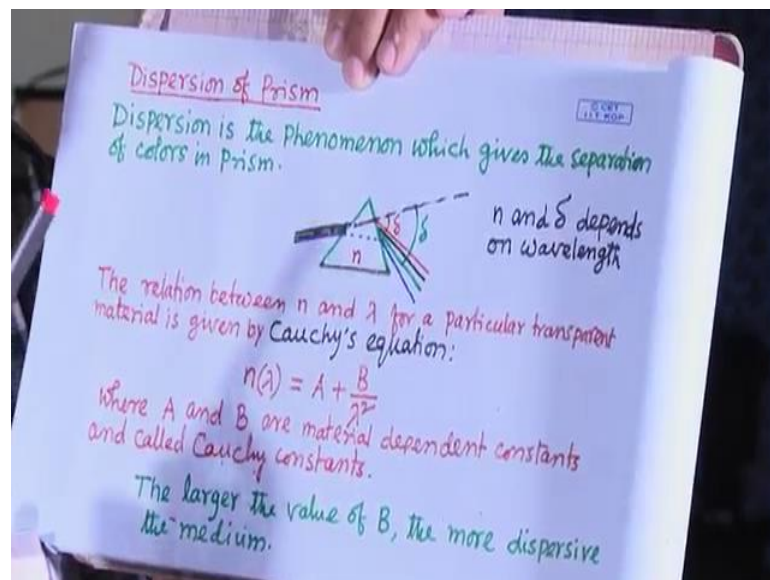 Dispersion of Prism
© CET
I.I.T. KGP
Dispersion is the Phenomenon which gives the separation
of colors in Prism.
δ
δ
n
n and δ depends
on wavelength
The relation between n and λ for a particular transparent
material is given by Cauchy's equation:
n(λ) = A + B/λ²
where A and B are material dependent constants
and called Cauchy constants.
The larger the value of B, the more dispersive
the medium.